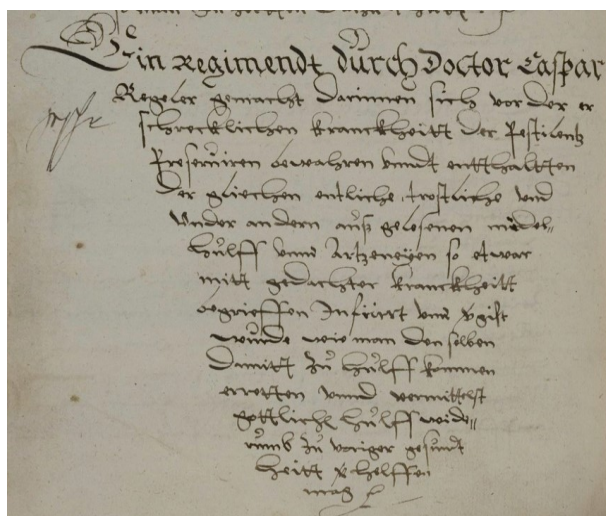 Ein Regimendt durch Doctor Caspar
Kegeler gemacht darinnen sich vor der er
schrecklichen kranckheitt der Pestilentz
Preserviren bewahren vnndt entthaltten
der gliechen entliche, trostliche vnd
vnder andern auß gelesenen middel=
hülff vnnd Artzeneyen so etwar
mitt gedachter kranckheitt
begrieffen Inficirt vnd vgift
wurde wie man den selben
damitt zu hülff kommen
erretten vnnd vermittelst
gottliche hülff wide=
rumb zu voriger gesundt
heitt vhelffen
mag